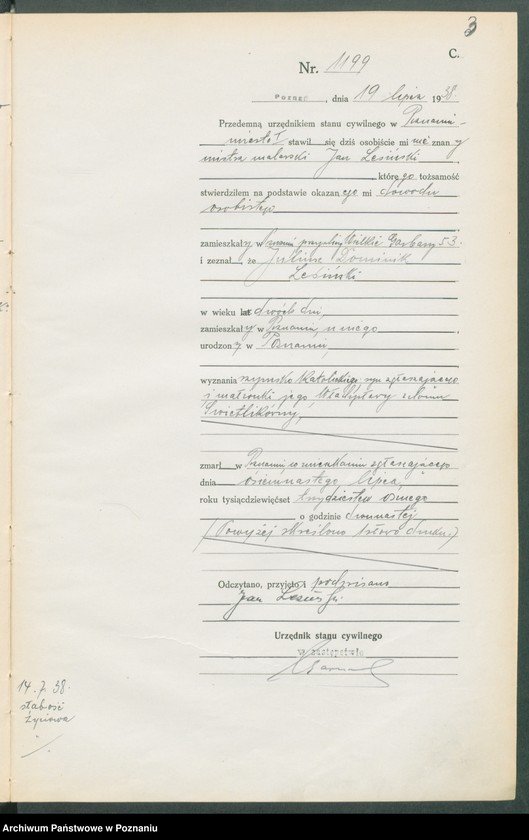 3
C.
Nr. 1199
Poznań, dnia 19 lipca 1938.
Przedemną urzędnikiem stanu cywilnego w Poznaniu-
miasto I stawił się dziś osobiście mi nie znany
mistrz malarski Jan Lesiński
którego tożsamość
stwierdziłem na podstawie okazanego mi dowodu
osobistego
zamieszkały w Poznaniu przy ulicy Wielkie Garbary 53.
i zeznał, że Juliusz Dominik
Lesiński
w wieku lat dwóch dni,
zamieszkały w Poznaniu, u niego
urodzony w Poznaniu,
wyznania rzymsko katolickiego, syn zgłaszającego
i małżonki jego Władysławy z domu
zmarł w Poznaniu, w mieszkaniu zgłaszającego
dnia osiemnastego lipca,
roku tysiącdziewięćset trzydziestego ósmego
o godzinie dwunastej
(Powyżej skreślono słowo druku.)
Odczytano, przyjęto i podpisano
Jan Lesiński
Urzędnik stanu cywilnego
w zastępstwie
14.7.38.
słabość
życiowa
Archiwum Państwowe w Poznaniu